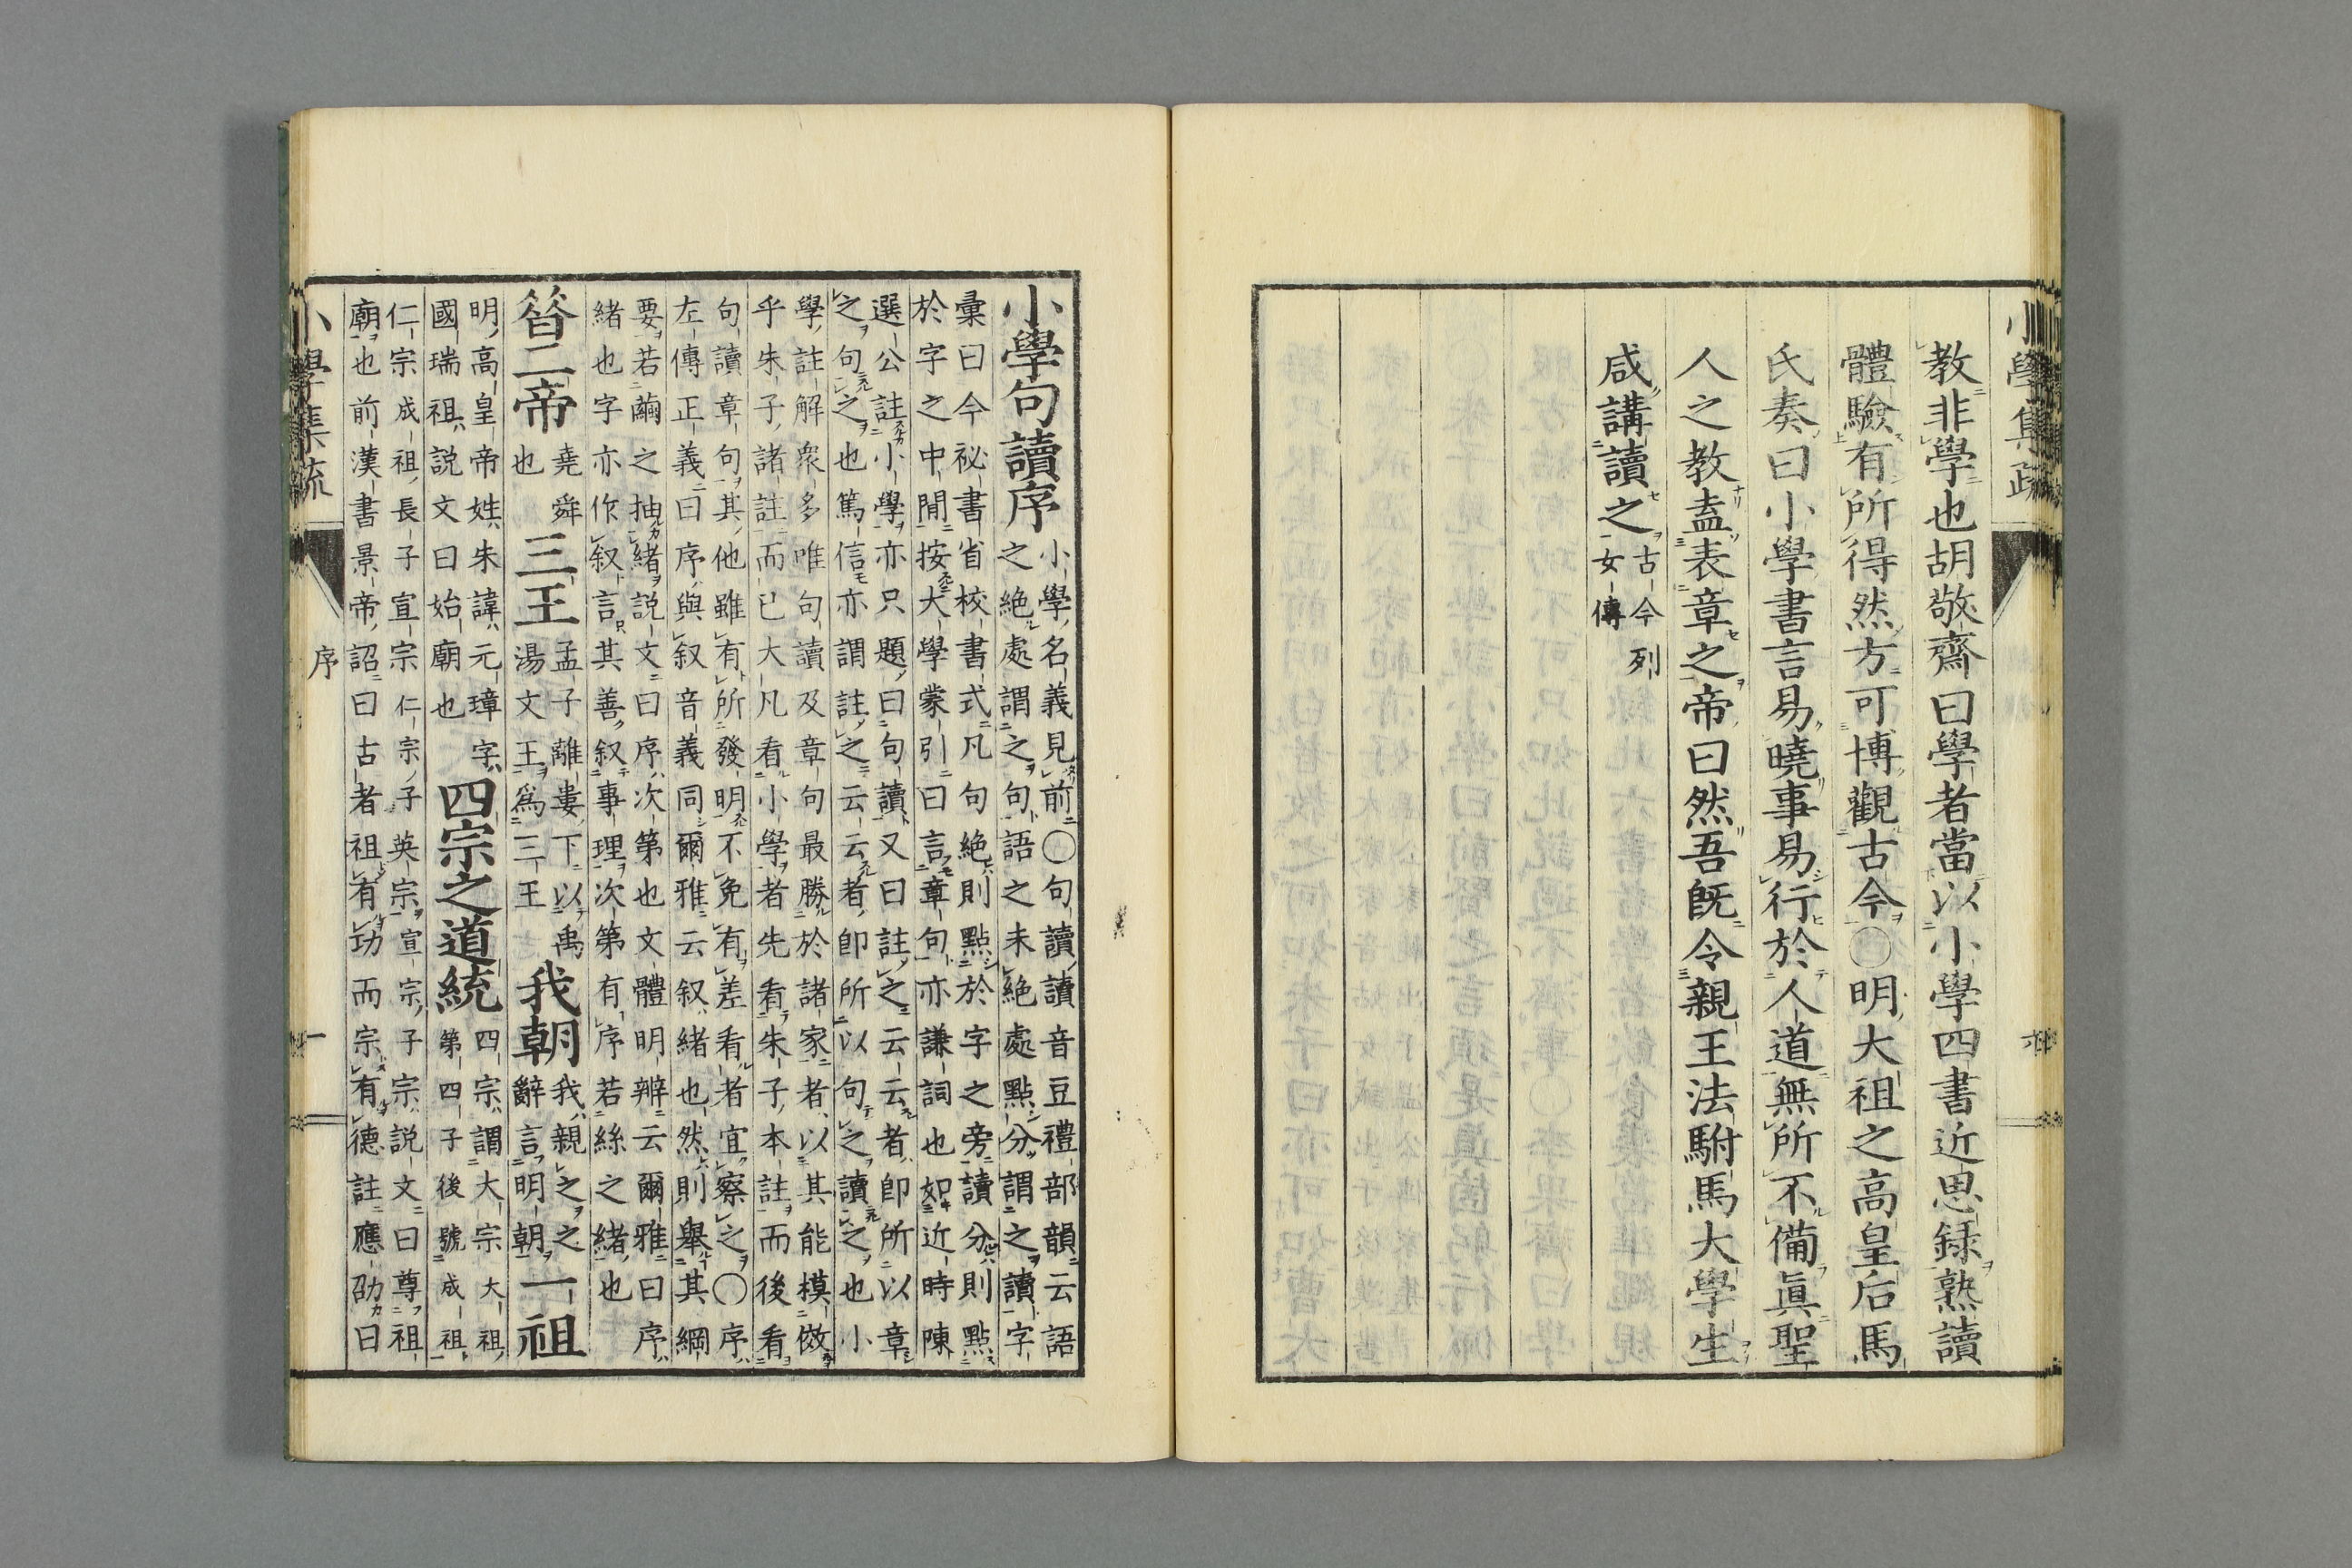 小學集疏
教非學也胡敬齋曰學者當以小學四書近思録熟讀
體驗有所得然方可博觀古今〇明大祖之高皇后馬
氏奏曰小學書言易曉事易行於人道無所不備眞聖
人之教盍表章之帝曰然吾既令親王法駙馬大學生
咸講讀之古今列
女傳
小學句讀序小學名義見前〇句讀讀音豆禮部韻云語
之絶處謂之句語之未絶處點分謂之讀字
彙曰今祕書省校書式凡句絶則點於字之旁讀分則點
於字之中閒按大學蒙引曰言章句亦謙詞也如近時陳
選公註小學亦只題曰句讀又曰註之云云者即所以章
之句之也篤信亦謂註之云云者即所以句之讀之也小
學註解衆多唯句讀及章句最勝於諸家者以其能模倣
乎朱子諸註而已大凡看小學者先看朱子本註而後看
句讀章句其他雖有所發明不免有差看者宜察之〇序
左傳正義曰序與叙音義同爾雅云叙緒也然則舉其綱
要若繭之抽緒説文曰序次第也文體明辨云爾雅曰序
緒也字亦作叙言其善叙事理次第有序若絲之緒也
昝二帝堯舜
也三王孟子離婁下以禹
湯文王爲三王我朝我親之之
辭言明朝一祖
明高皇帝姓朱諱元璋字
國瑞祖説文曰始廟也四宗之道統四宗謂大宗大祖
第四子後號成祖
仁宗成祖長子宣宗仁宗子英宗宣宗子宗説文曰尊祖
廟也前漢書景帝詔曰古者祖有功而宗有德註應劭曰
小學集疏
序
一